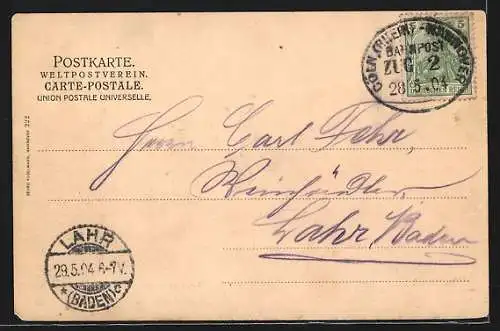 POSTKARTE.
WELTPOSTVEREIN.
CARTE-POSTALE.
UNION POSTALE UNIVERSELLE.
CÖLN (RHEIN)-HANNOVER
BAHNPOST
ZUG 2
28 5.04
5
Herrn Carl Fehr
Weinhändler
Lahr Baden
LAHR
29.5.04.6-7V.
*(BADEN)c